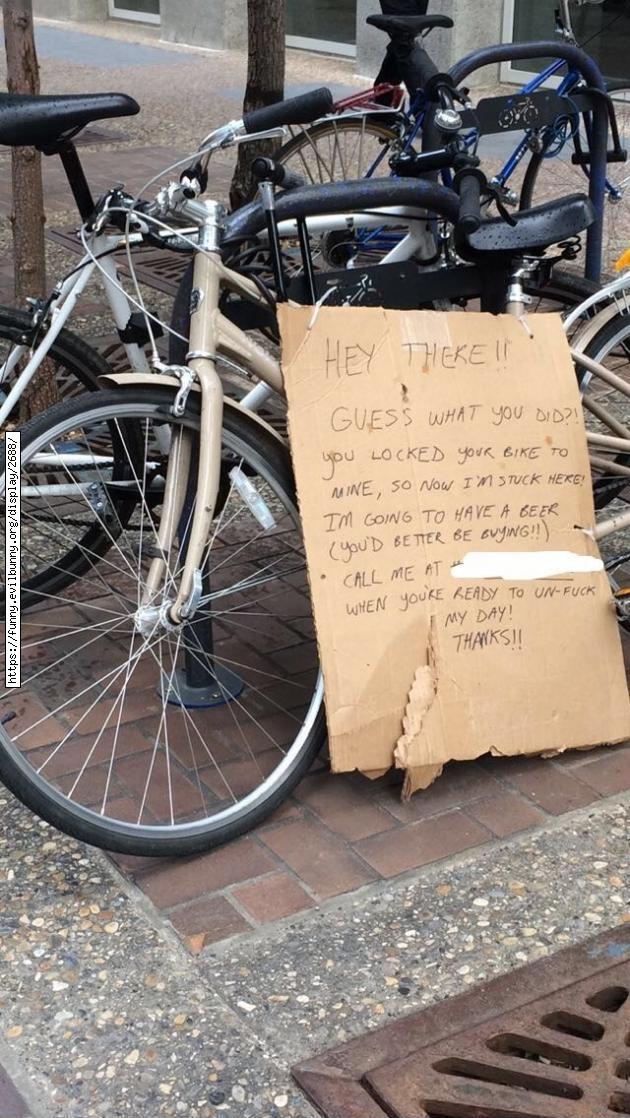 HEY THERE!!
GUESS WHAT YOU DID?!
YOU LOCKED YOUR BIKE TO
MINE, SO NOW I'M STUCK HERE!
I'M GOING TO HAVE A BEER
(YOU'D BETTER BE BUYING!!)
CALL ME AT
WHEN YOU'RE READY TO UN-FUCK
MY DAY!
THANKS!!
https://funny.evilbunny.org/display/2688/